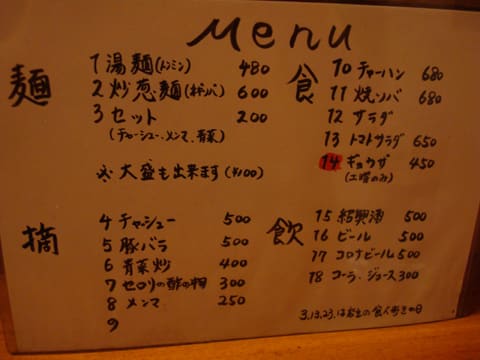 Menu
麺
1 湯麺(トンミン) 480
2 炒葱麺(ネギソバ) 600
3 セット 200
(チャーシュー、メンマ、青菜)
大盛も出来ます(¥100)
摘
4 チャシュー 500
5 豚バラ 500
6 青菜炒 400
7 セロリの酢の物 300
8 メンマ 250
9
食
10 チャーハン 680
11 焼ソバ 680
12 サラダ
13 トマトサラダ 650
14 ギョウザ 450
(土曜のみ)
飲
15 紹興酒 500
16 ビール 500
17 コロナビール 500
18 コーラ、ジュース 300
3.13.23.は の食 の日